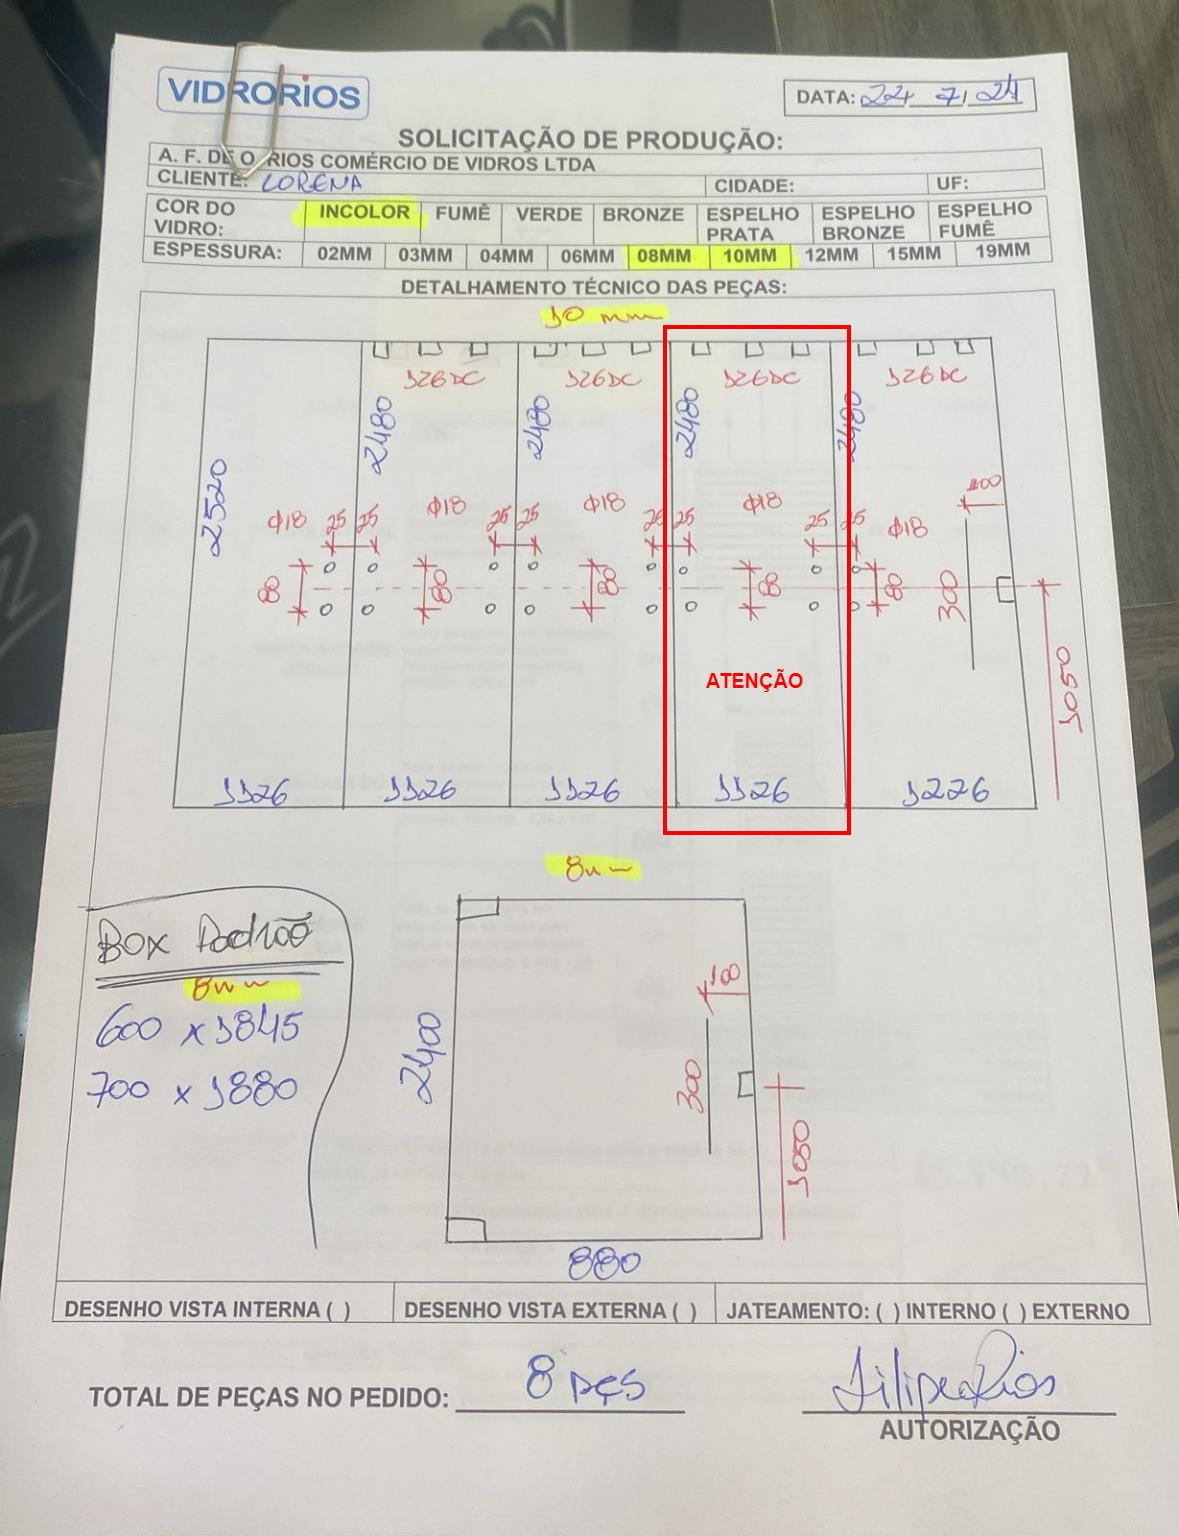 VIDRORIOS
DATA: 22/ 7/ 24
SOLICITAÇÃO DE PRODUÇÃO:
A. F. DE O. RIOS COMÉRCIO DE VIDROS LTDA
CLIENTE: LORENA CIDADE: UF:
COR DO VIDRO: INCOLOR FUMÊ VERDE BRONZE ESPELHO PRATA ESPELHO BRONZE ESPELHO FUMÊ
ESPESSURA: 02MM 03MM 04MM 06MM 08MM 10MM 12MM 15MM 19MM
DETALHAMENTO TÉCNICO DAS PEÇAS:
10 mm
126DC 126DC 126DC 126DC
2520 2480 2480 2480 2480
Φ18 25 25 Φ18 25 25 Φ18 25 25 Φ18 25 25 Φ18 100
80 80 80 80 80 300
1050
ATENÇÃO
1126 1126 1126 1126 1226
8mm
Box Padrão
8mm
600 x 1845
700 x 1880
2400
100
300
1050
880
DESENHO VISTA INTERNA ( ) DESENHO VISTA EXTERNA ( ) JATEAMENTO: ( ) INTERNO ( ) EXTERNO
TOTAL DE PEÇAS NO PEDIDO: 8 pçs
Filipe Rios
AUTORIZAÇÃO